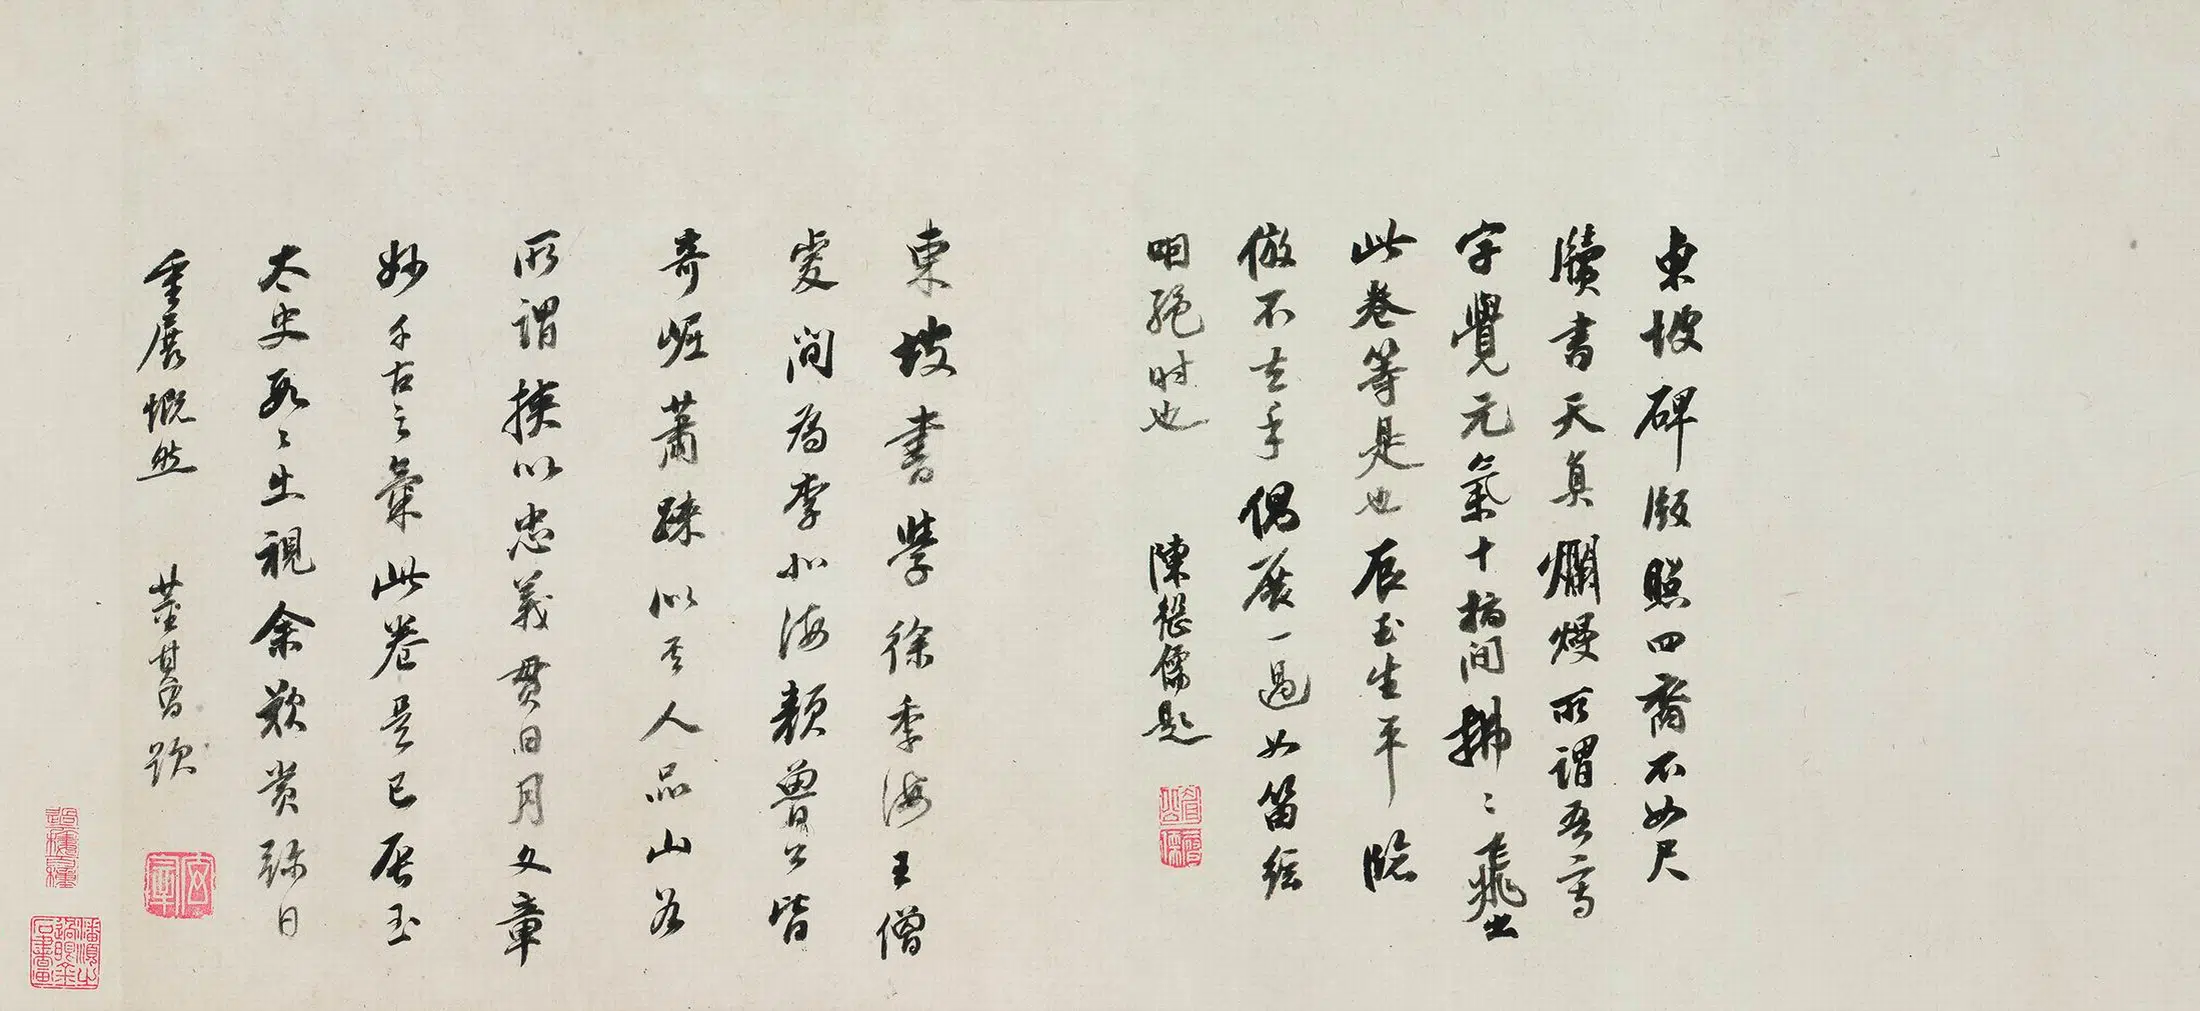 東坡碑版照四裔不如尺
牘書天真爛熳所謂吾寫
字覺元氣十指間拂〻飛出
此卷等是也辰玉生平臨
倣不去手偶展一過如笛絃
咽絕時也 陳繼儒題
東坡書學徐季海王僧
虔間為李北海顏魯公皆
奇崛蕭踈似其人品山谷
所謂挾以忠義貫日月文章
妙千古之氣此卷是已辰玉
太史出視余歎賞彌日
重展慨然 董其昌跋
玄宰